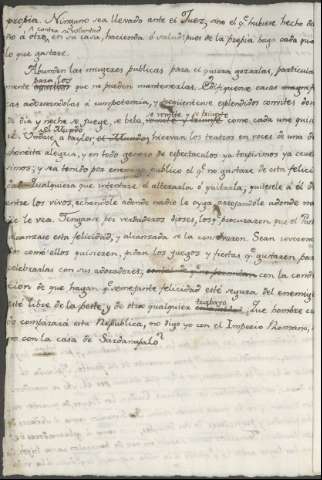 propia. Ninguno sea llevado ante el Juez, sino el q.e hubiere hecho da
ño á otro, contra su voluntad en su casa, hacienda ó salud; pues de la propia haga cada qual
lo que gustare.
Abunden las mugeres publicas para el q.e quiera gozarlas, particular
mente para los que no pueden mantenerlas. Edifiquense casas
adornandolas á competencia, y frequentense esplendidos convites don
de dia y noche se juegue, se beba, se vomite como cada uno guste
re. Vayase á bailar, hiervan los teatros en voces de una des
honesta alegria, y en todo genero de espectaculos ya torpisimos ya cruel
simos; y sea tenido por enemigo publico el q.e no gustare de esta felicidad.
Qualquiera que intentare el alterarla ó quitarla, quitesele á él de
entre los vivos, echandole adonde nadie le oyga, arrojandole adonde na
die le vea. Tenganse por verdaderos dioses, los q.e procuraren que el Pueblo
alcanzase esta felicidad, y alcanzada se la conservaren. Sean reverencia
dos como ellos quisieren, pidan los juegos y fiestas q.e gustaren para
celebrarlas con sus adoradores; con la condi
cion de que hagan q.e semejante felicidad esté segura del enemigo
esté libre de la peste, y de otro qualquiera trabajo. Que hombre cuer
do comparará esta Republica, no digo yo con el Imperio Romano, si
no con la casa de Sardanapalo?